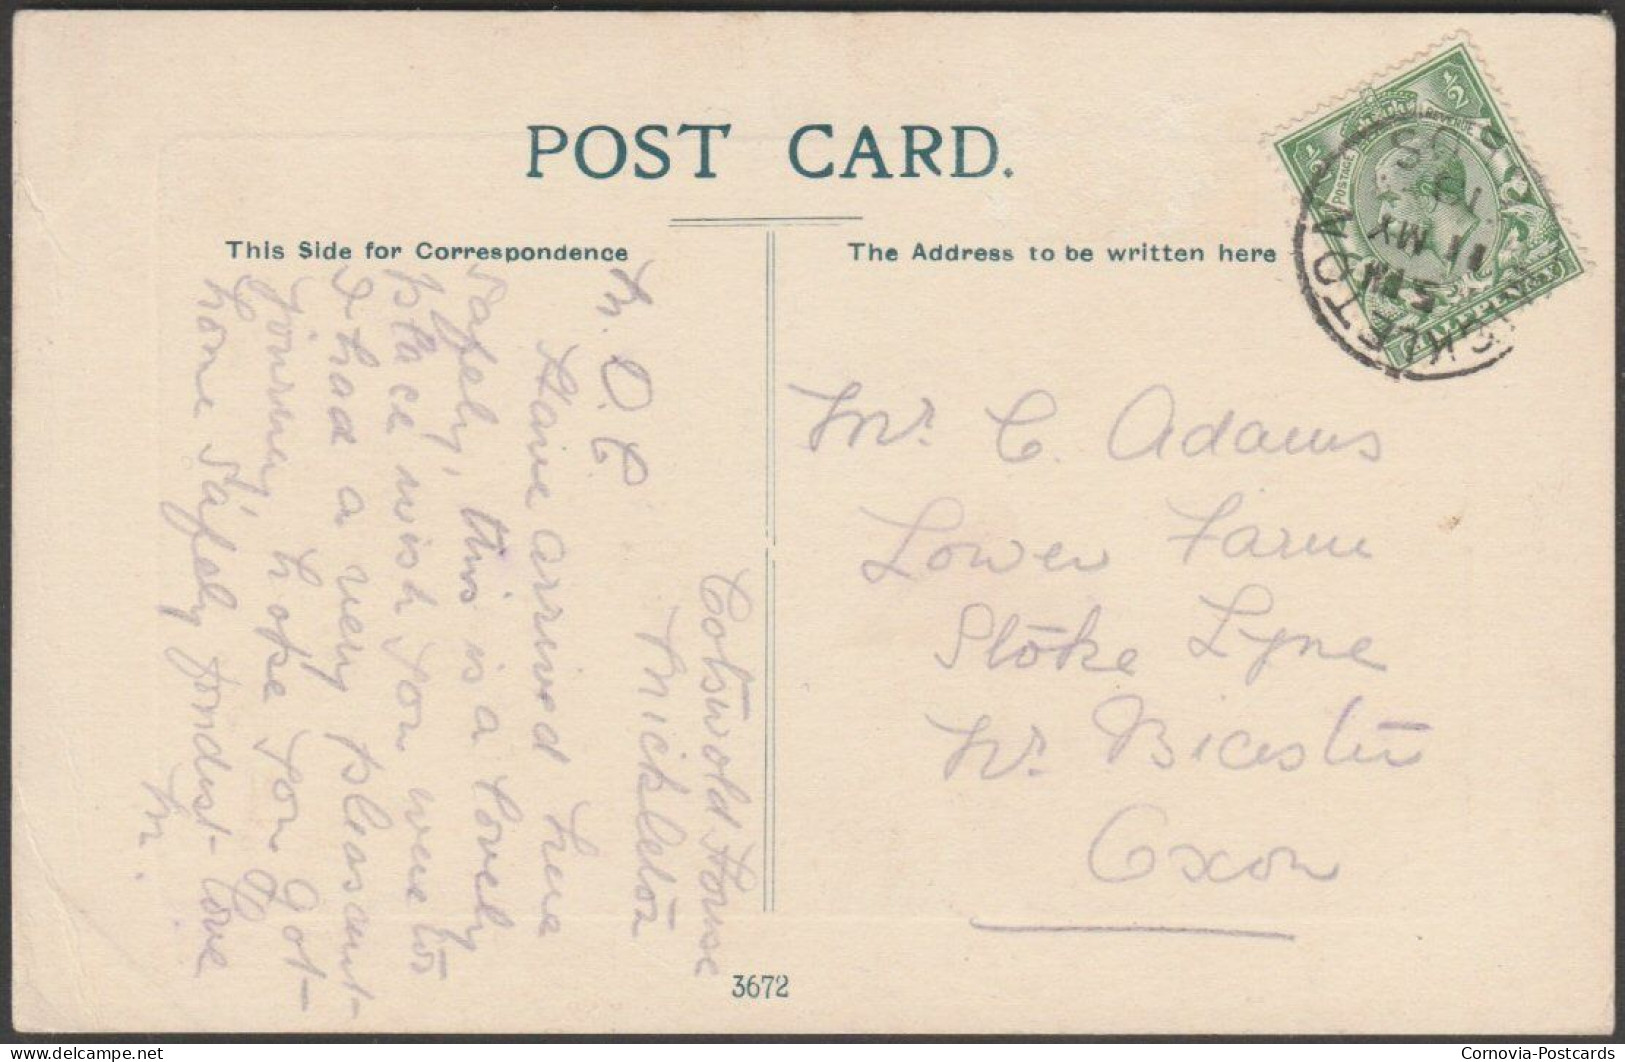 POST CARD.
This Side for Correspondence
The Address to be written here
Cotswold House
Mickleton
M. D. C.
Have arrived here
safely, this is a lovely
place wish you were to
I had a very pleasant
journey, hope you got
home safely fondest love
M.
Mr. C. Adams
Lower Farm
Stoke Lyne
Nr. Bicester
Oxon
3672
½
½
POSTAGE
REVENUE
HALFPENNY
MICKLETON
5 PM
11 MY
Cornovia-Postcards
delcampe.net